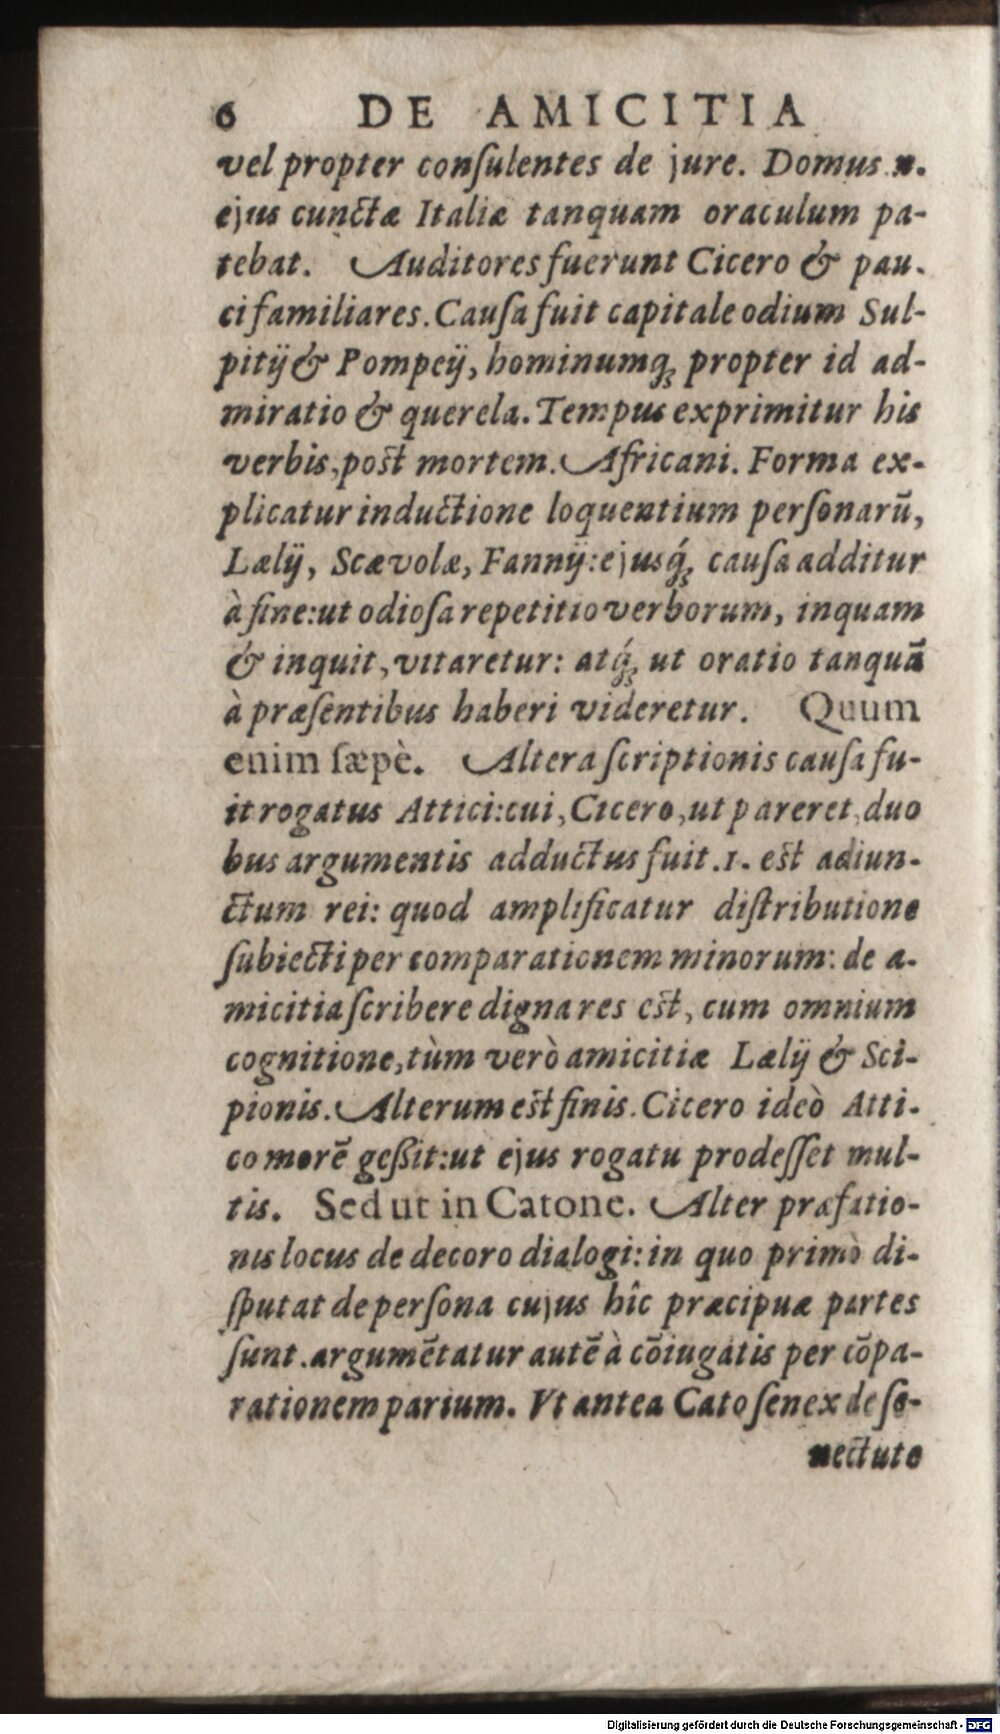 6 DE AMICITIA
vel propter conſulentes de jure. Domus n.
ejus cunctæ Italiæ tanquam oraculum pa-
tebat. Auditores fuerunt Cicero & pau-
ci familiares. Cauſa fuit capitale odium Sul-
pitij & Pompeij, hominumq́; propter id ad-
miratio & querela. Tempus exprimitur his
verbis, post mortem. Africani. Forma ex-
plicatur inductione loquentium perſonarū,
Lælij, Scævolæ, Fannij: ejusq́; cauſa additur
à fine: ut odioſa repetitio verborum, inquam
& inquit, vitaretur: atq́; ut oratio tanquā
à præſentibus haberi videretur. Quum
enim ſæpè. Altera ſcriptionis cauſa fu-
it rogatus Attici: cui, Cicero, ut pareret, duo
bus argumentis adductus fuit. 1. est adiun-
ctum rei: quod amplificatur diſtributione
ſubiecti per comparationem minorum: de a-
micitia ſcribere digna res est, cum omnium
cognitione, tùm verò amicitiæ Lælij & Sci-
pionis. Alterum est finis. Cicero ideò Atti-
co morē geßit: ut ejus rogatu prodeſſet mul-
tis. Sed ut in Catone. Alter præfatio-
nis locus de decoro dialogi: in quo primò di-
ſputat de perſona cujus hîc præcipuæ partes
ſunt. argumētatur autē à cōiugatis per cōpa-
rationem parium. Vt antea Cato ſenex de ſe-
nectute
Digitalisierung gefördert durch die Deutsche Forschungsgemeinschaft - DFG